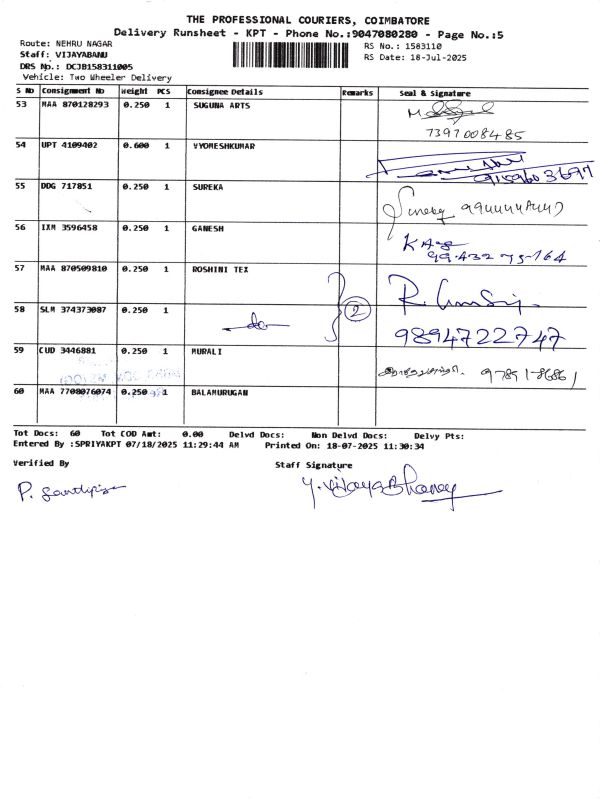 THE PROFESSIONAL COURIERS, COIMBATORE
Delivery Runsheet - KPT - Phone No.:9047080280 - Page No.:5
Route: NEHRU NAGAR
Staff: VIJAYABANU
DRS No.: DCJB158311005
Vehicle: Two Wheeler Delivery
RS No.: 1583110
RS Date: 18-Jul-2025
S No Consignment No Weight PCS Consignee Details Remarks Seal & Signature
53 MAA 870128293 0.250 1 SUGUNA ARTS
7397008485
54 UPT 4109402 0.600 1 VYOMESHKUMAR
9159603697
55 DDG 717851 0.250 1 SUREKA
56 IXM 3596458 0.250 1 GANESH
99432 75164
57 MAA 870509810 0.250 1 ROSHINI TEX
58 SLM 374373087 0.250 1
do 2
9894722747
59 CUD 3446881 0.250 1 MURALI
60 MAA 7708076074 0.250 1 BALAMURUGAN
Tot Docs: 60 Tot COD Amt: 0.00 Delvd Docs: Non Delvd Docs: Delvy Pts:
Entered By :SPRIYAKPT 07/18/2025 11:29:44 AM Printed On: 18-07-2025 11:30:34
Verified By Staff Signature
Y. VijayaBhanu